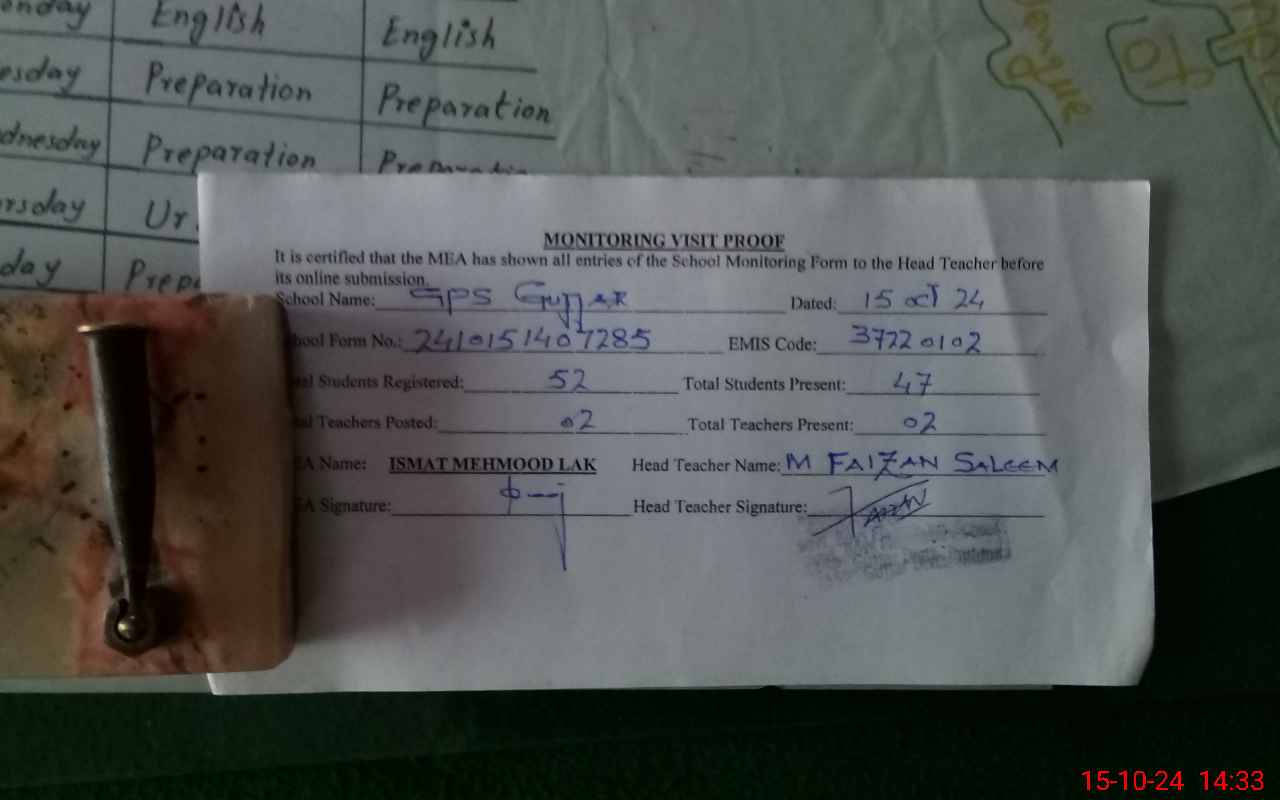 English English
Preparation Preparation
Preparation
Dengue
of
MONITORING VISIT PROOF
It is certified that the MEA has shown all entries of the School Monitoring Form to the Head Teacher before
its online submission.
School Name: GPS Gujjar Dated: 15 oct 24
Form No.: 2410151407285 EMIS Code: 37220102
Students Registered: 52 Total Students Present: 47
Teachers Posted: 02 Total Teachers Present: 02
Name: ISMAT MEHMOOD LAK Head Teacher Name: M FAIZAN SALEEM
Signature: Head Teacher Signature:
15-10-24 14:33